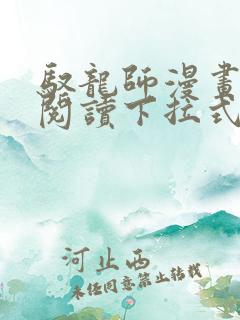 馭龍師漫畫
閱讀下拉式
河止西
未经同意禁止转载